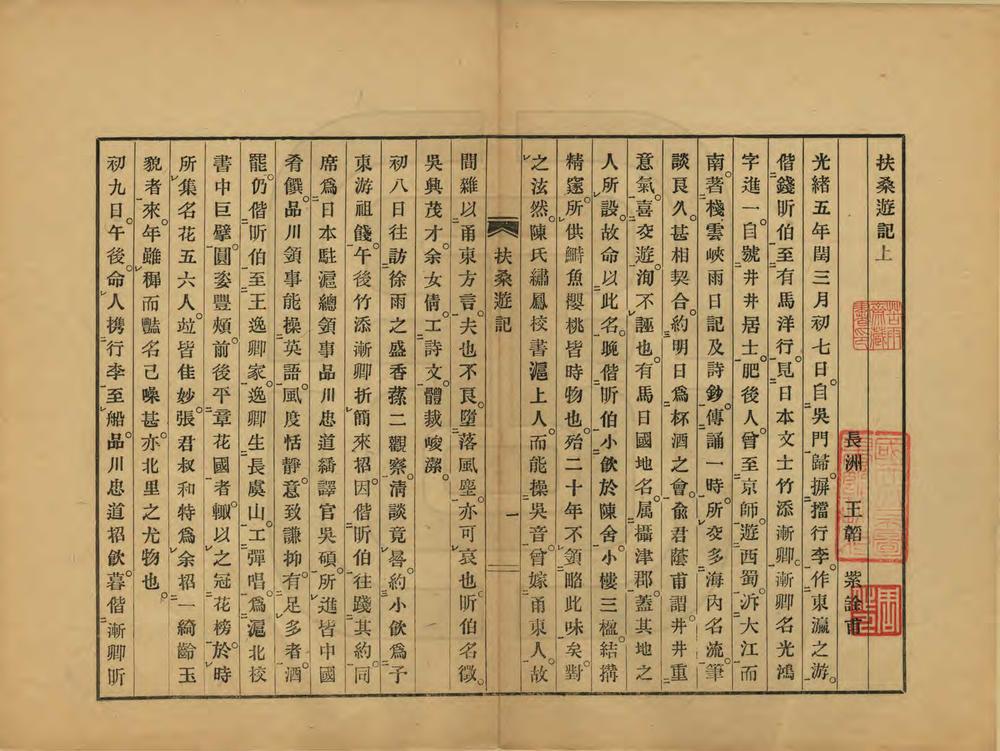 扶桑遊記上
長洲 王韜 紫詮甫
光緒五年閏三月初七日自吳門歸摒擋行李作東瀛之游
偕錢昕伯至有馬洋行見日本文士竹添漸卿漸卿名光鴻
字進一自號井井居士肥後人曾至京師遊西蜀泝大江而
南著棧雲峽雨日記及詩鈔傳誦一時所交多海內名流筆
談良久甚相契合約明日爲杯酒之會俞君蔭甫謂井井重
意氣喜交遊洵不誣也有馬日國地名屬攝津郡蓋其地之
人所設故命以此名晚偕昕伯小飲於陳舍小樓三楹結搆
精邃所供鰣魚櫻桃皆時物也殆二十年不領略此味矣對
之泫然陳氏繡鳳校書滬上人而能操吳音曾嫁甬東人故
扶桑遊記
一
間雜以甬東方言夫也不良墮落風塵亦可哀也昕伯名徵
吳興茂才余女倩工詩文體裁峻潔
初八日往訪徐雨之盛香蓀二觀察淸談竟晷約小飲爲子
東游祖餞午後竹添漸卿折簡來招因偕昕伯往踐其約同
席爲日本駐滬總領事品川忠道繙譯官吳碩所進皆中國
肴饌品川領事能操英語風度恬靜意致謙抑有足多者酒
罷仍偕昕伯至王逸卿家逸卿生長虞山工彈唱爲滬北校
書中巨擘圓姿豐頰前後平章花國者輙以之冠花榜於時
所集名花五六人竝皆佳妙張君叔和特爲余招一綺齡玉
貌者來年雖穉而豔名已噪甚亦北里之尤物也
初九日午後命人擕行李至船品川忠道招飲暮偕漸卿昕